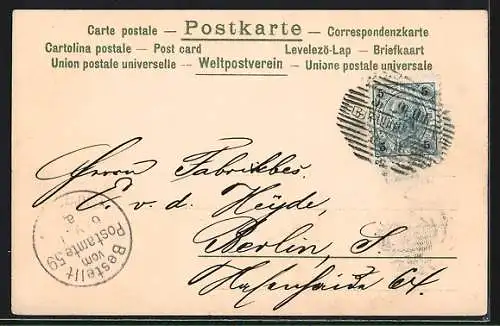 Carte postale — Postkarte — Correspondenzkarte
Cartolina postale — Post card Levelezö-Lap — Briefkaart
Union postale universelle — Weltpostverein — Unione postale universale
5 5
5 5
Herrn Fabrikbes.
E. v. d. Heyde,
Berlin, S.
Hasenhaide 64.
Bestellt
vom
Postamte 59